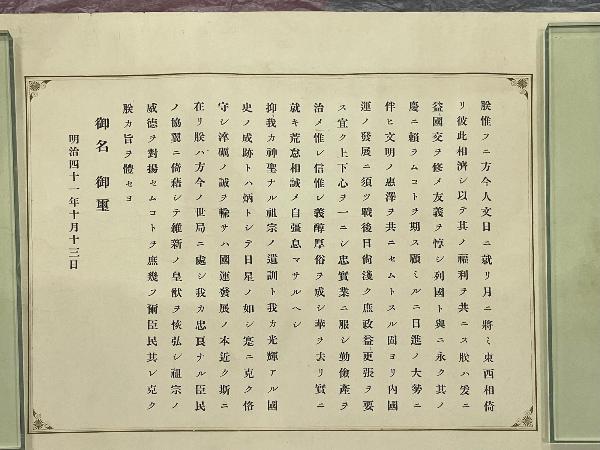 朕惟フニ方今人文日ニ就リ月ニ將ミ東西相倚
リ彼此相濟シ以テ其ノ福利ヲ共ニス朕ハ爰ニ
益國交ヲ修メ友義ヲ惇シ列國ト與ニ永ク其ノ
慶ニ賴ラムコトヲ期ス顧ミルニ日進ノ大勢ニ
伴ヒ文明ノ惠澤ヲ共ニセムトスル固ヨリ內國
運ノ發展ニ須ツ戰後日尙淺ク庶政益更張ヲ要
ス宜ク上下心ヲ一ニシ忠實業ニ服シ勤儉產ヲ
治メ惟レ信惟レ義醇厚俗ヲ成シ華ヲ去リ實ニ
就キ荒怠相誡メ自彊息マサルヘシ
抑我カ神聖ナル祖宗ノ遺訓ト我カ光輝アル國
史ノ成跡トハ炳トシテ日星ノ如シ寔ニ克ク恪
守シ淬礪ノ誠ヲ輸サハ國運發展ノ本近ク斯ニ
在リ朕ハ方今ノ世局ニ處シ我カ忠良ナル臣民
ノ協翼ニ倚藉シテ維新ノ皇猷ヲ恢弘シ祖宗ノ
威德ヲ對揚セムコトヲ庶幾フ爾臣民其レ克ク
朕カ旨ヲ體セヨ
御名 御璽
明治四十一年十月十三日